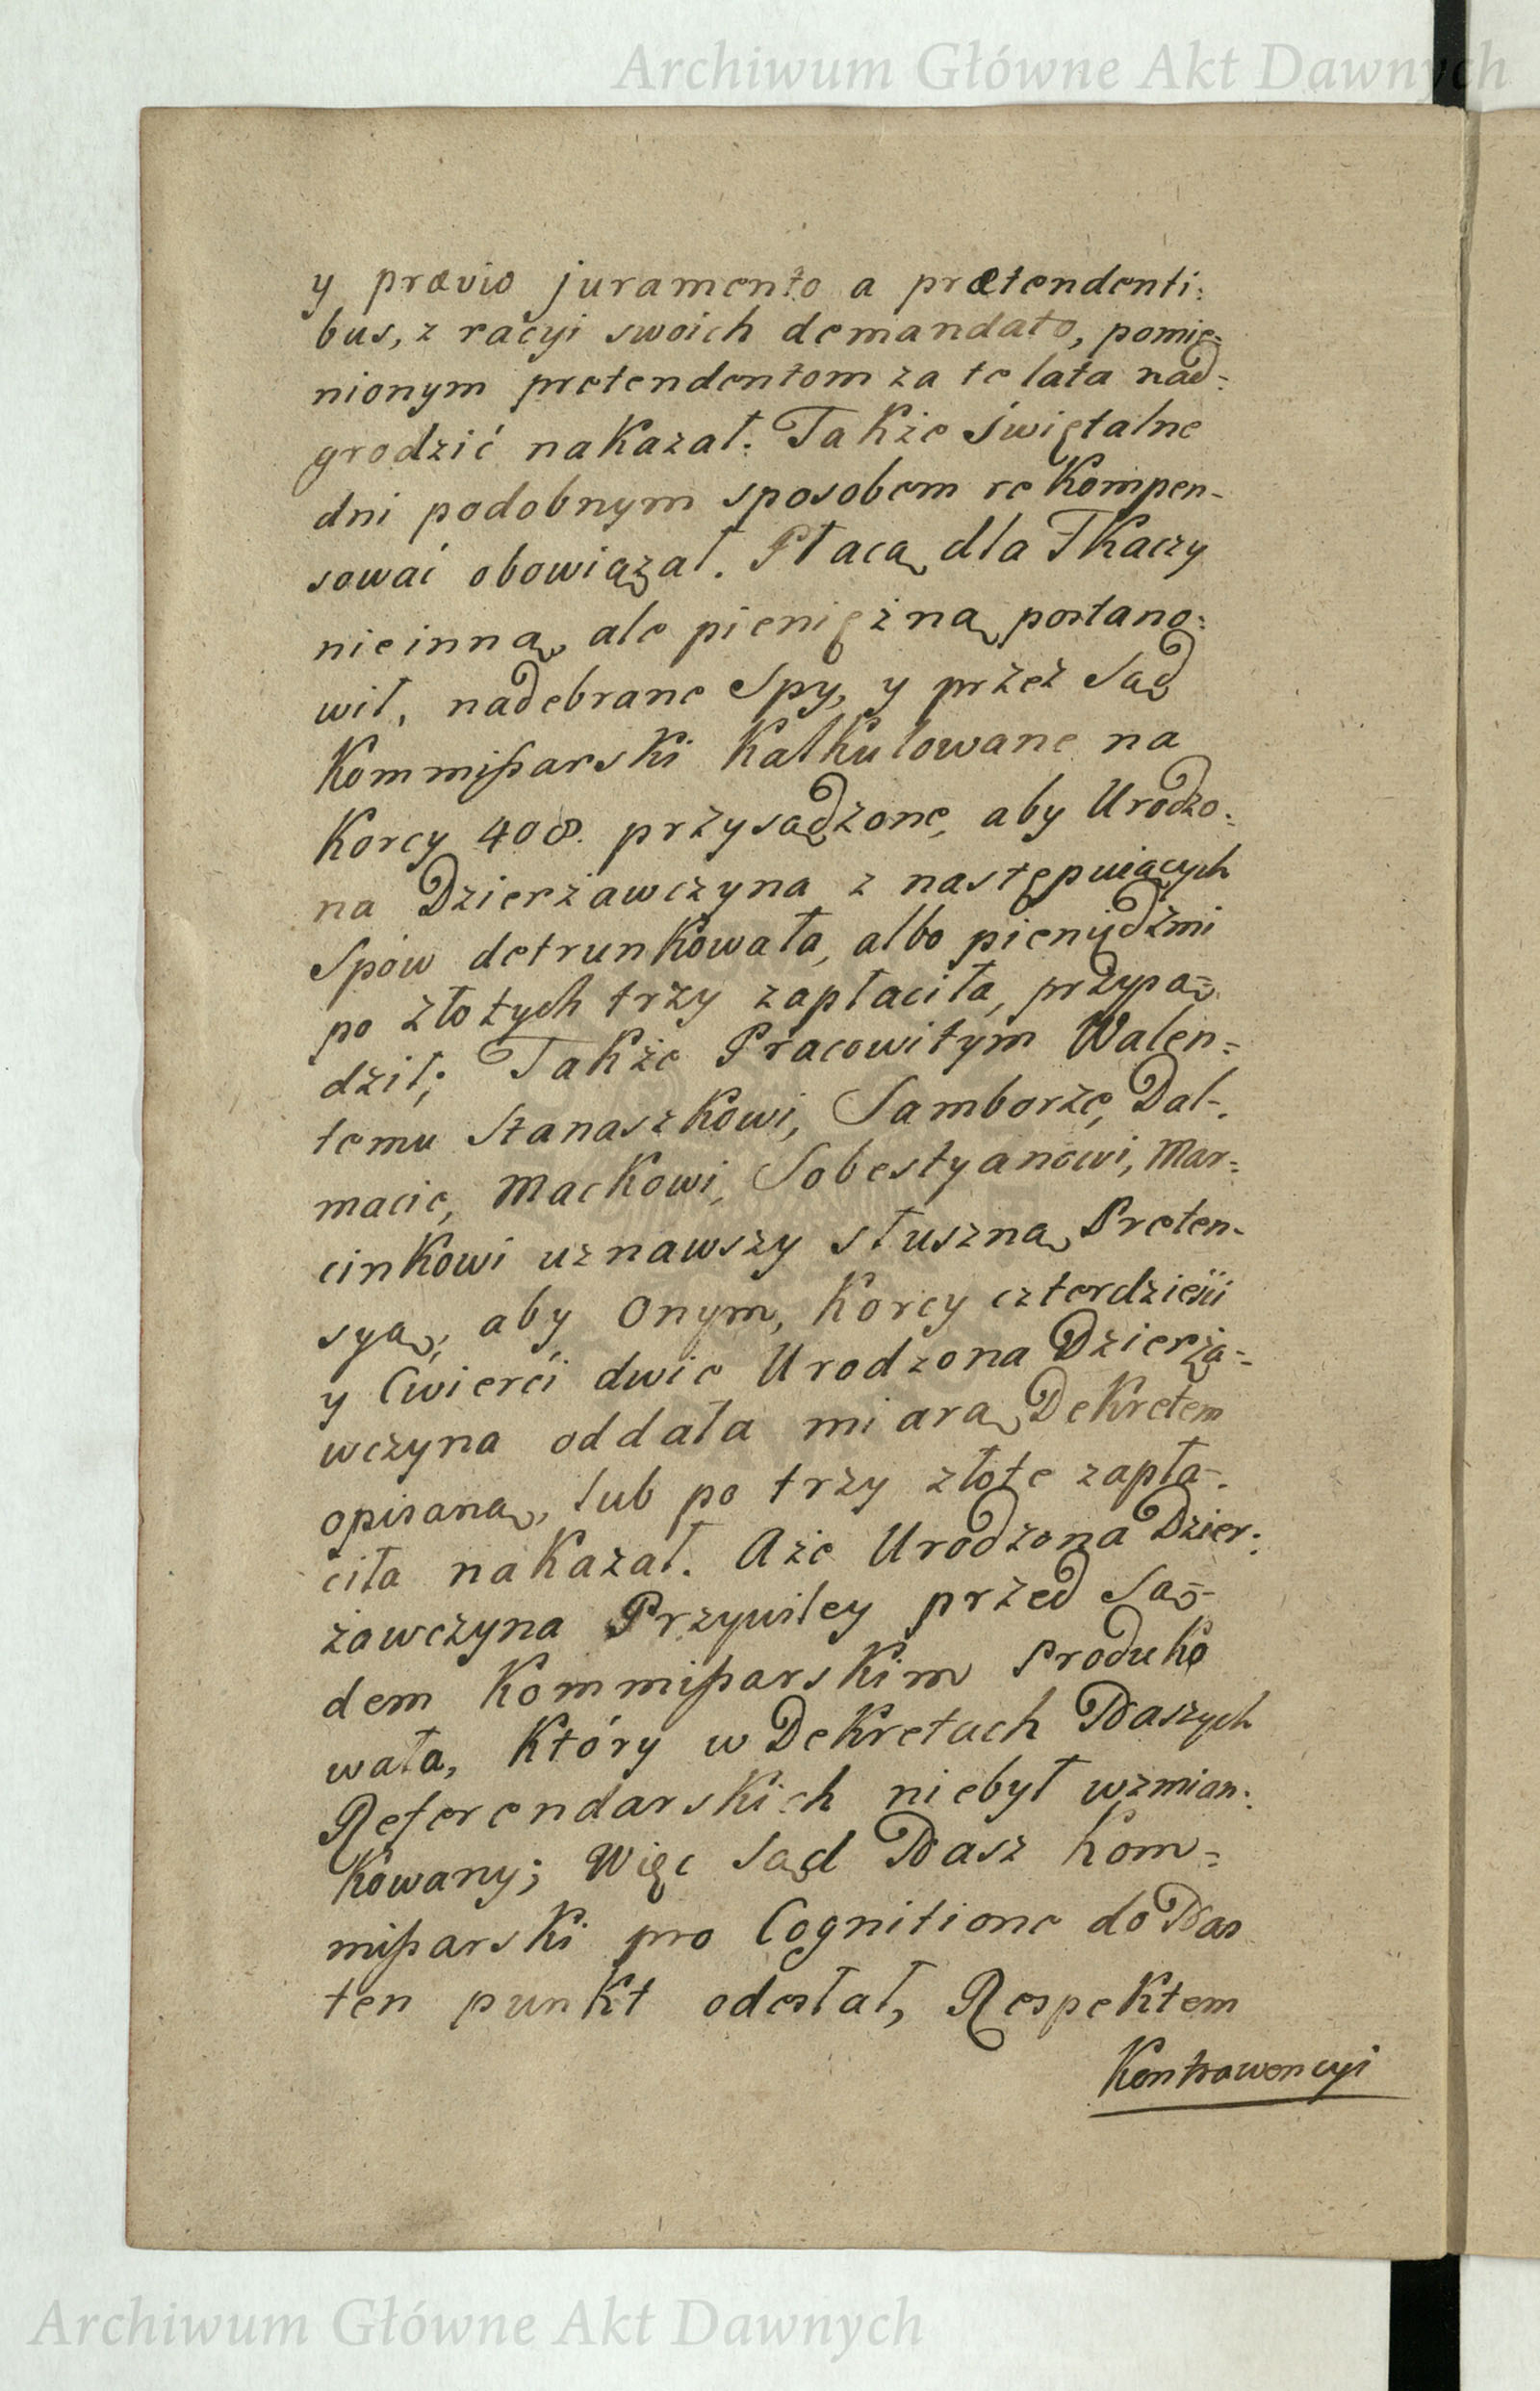 Archiwum Główne Akt Dawnych
y prævio juramento a prætendenti:
bus, z racyi swoich demandato, pomie:
nionym pretendentom za te lata nad:
grodzić nakazał. Także świętalne
dni podobnym sposobem rekompen-
sować obowiązał. Płacą dla Tkaczy
nieinną, ale pieniężną postano:
wił, nadebrane Spy, y przez Sąd
Kommißarski Kalkulowane na
Korcy 408. przysądzone, aby Urodzo:
na Dzierżawczyna z następuiących
Spów detrunkowała, albo pieniędźmi
po złotych trzy zapłaciła, przypą=
dził; Także Pracowitym Walen=
temu Stanaszkowi, Samborze, Dal-
macie, Mackowi, Sobestyanowi, Mar=
cinkowi uznawszy słuszną Preten-
syą; aby Onym, Korcy czterdzieści
y Cwierci dwie Urodzona Dzierża=
wczyna oddała miarą Dekretem
opisaną, lub po trzy złote zapła-
ciła nakazał. Aże Urodzona Dzier:
żawczyna Przywiley przed Są=
dem Kommißarskim Produko
wała, Który w Dekretach Naszych
Referendarskich niebył wzmian:
Kowany; Więc Sąd Nasz Kom=
mißarski pro Cognitione do Nas
ten punkt odesłał, Respektem
Kontrawencyi
Archiwum Główne Akt Dawnych